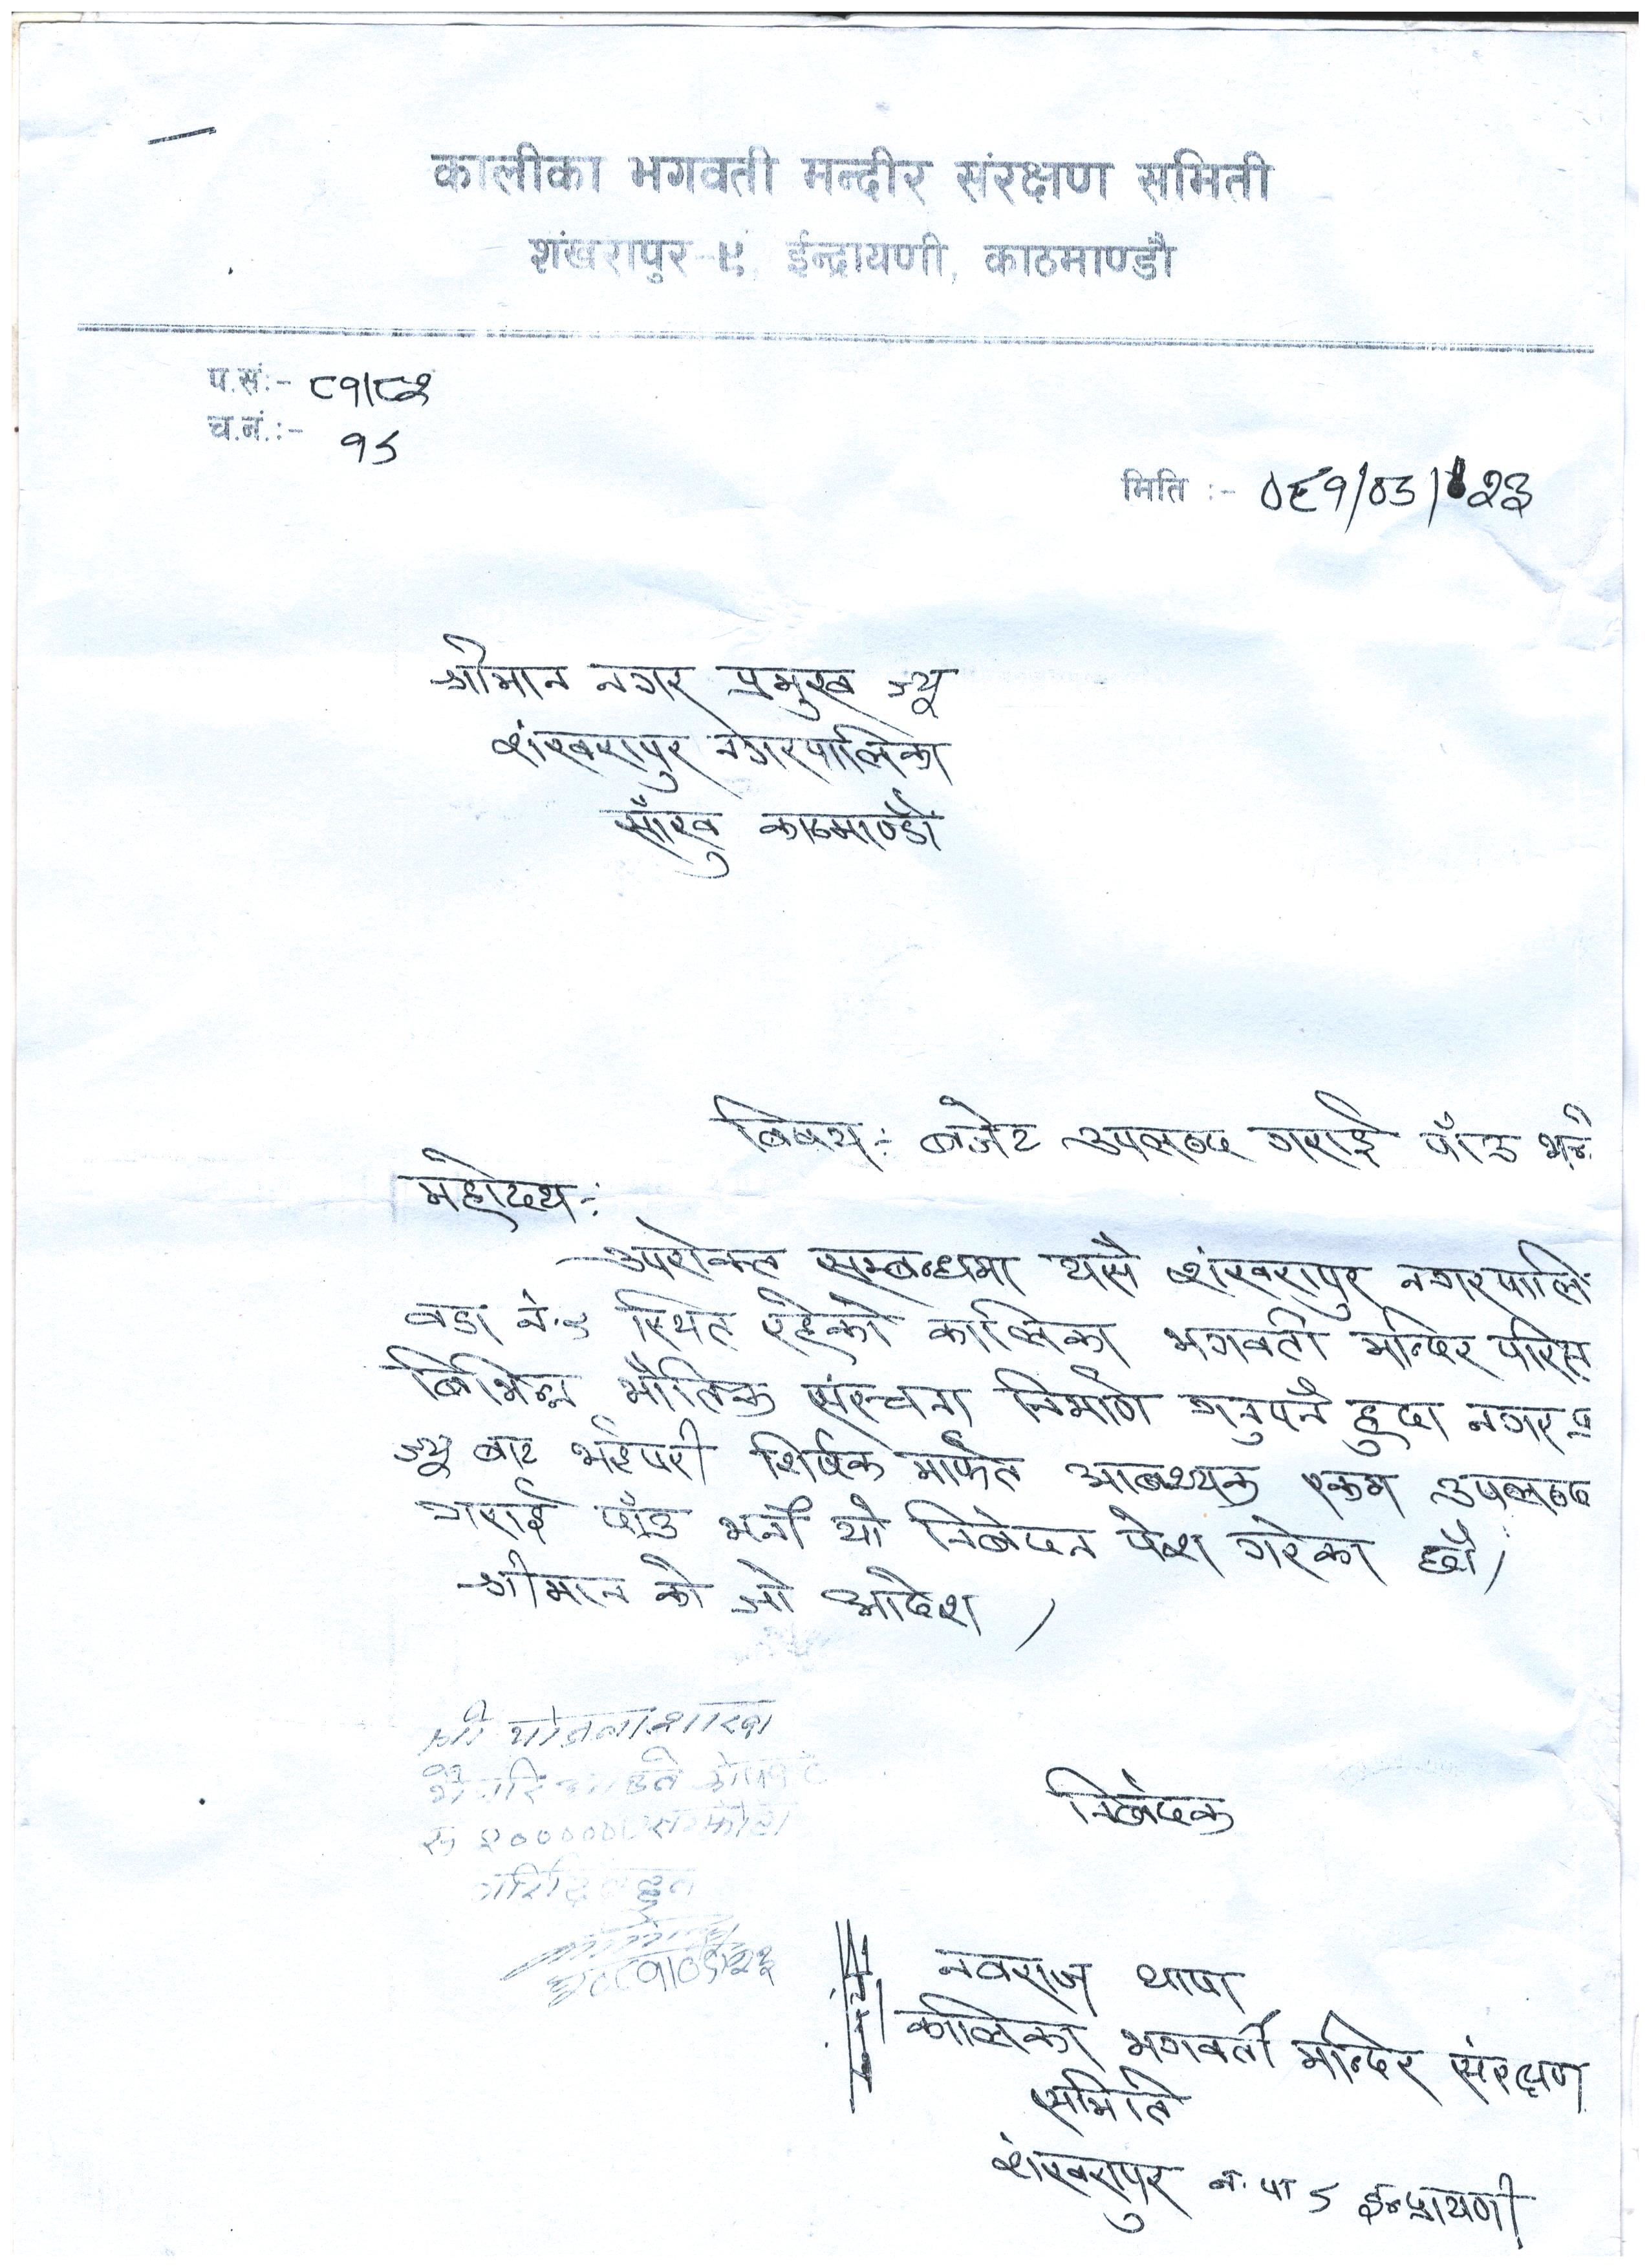 कालीका भगवती मन्दीर संरक्षण समिती
शंखरापुर-५, ईन्द्रायणी, काठमाण्डौ
प.सं:- ८१/८२
च.नं.:- १५
मिति :- ०८१/०५/२३
श्रीमान नगर प्रमुख ज्यू
शंखरापुर नगरपालिका
साँखु काठमाण्डौ
बिषय:- बजेट उपलब्ध गराई पाँउ भन्ने
महोदय:-
उपरोक्त सम्बन्धमा यसै शंखरापुर नगरपालि
वडा नं. ५ स्थित रहेको कालिका भगवती मन्दिर परिस
बिभिन्न भौतिक संरचना निर्माण गनुपर्ने हुदा नगर प्र
ज्यू बाट भईपरी शिर्षक मार्फत आबश्यक रकम उपलब्ध
गराई पाँउ भनी यो निबेदन पेश गरेका छौं।
श्रीमान को जो आदेश ।
श्री योजना शाखा
रु २०००००
२०८१/०५/२३
निबेदक
नवराज थापा
कालिका भगवती मन्दिर संरक्षण
समिति
शंखरापुर न. पा ५ ईन्द्रायणी